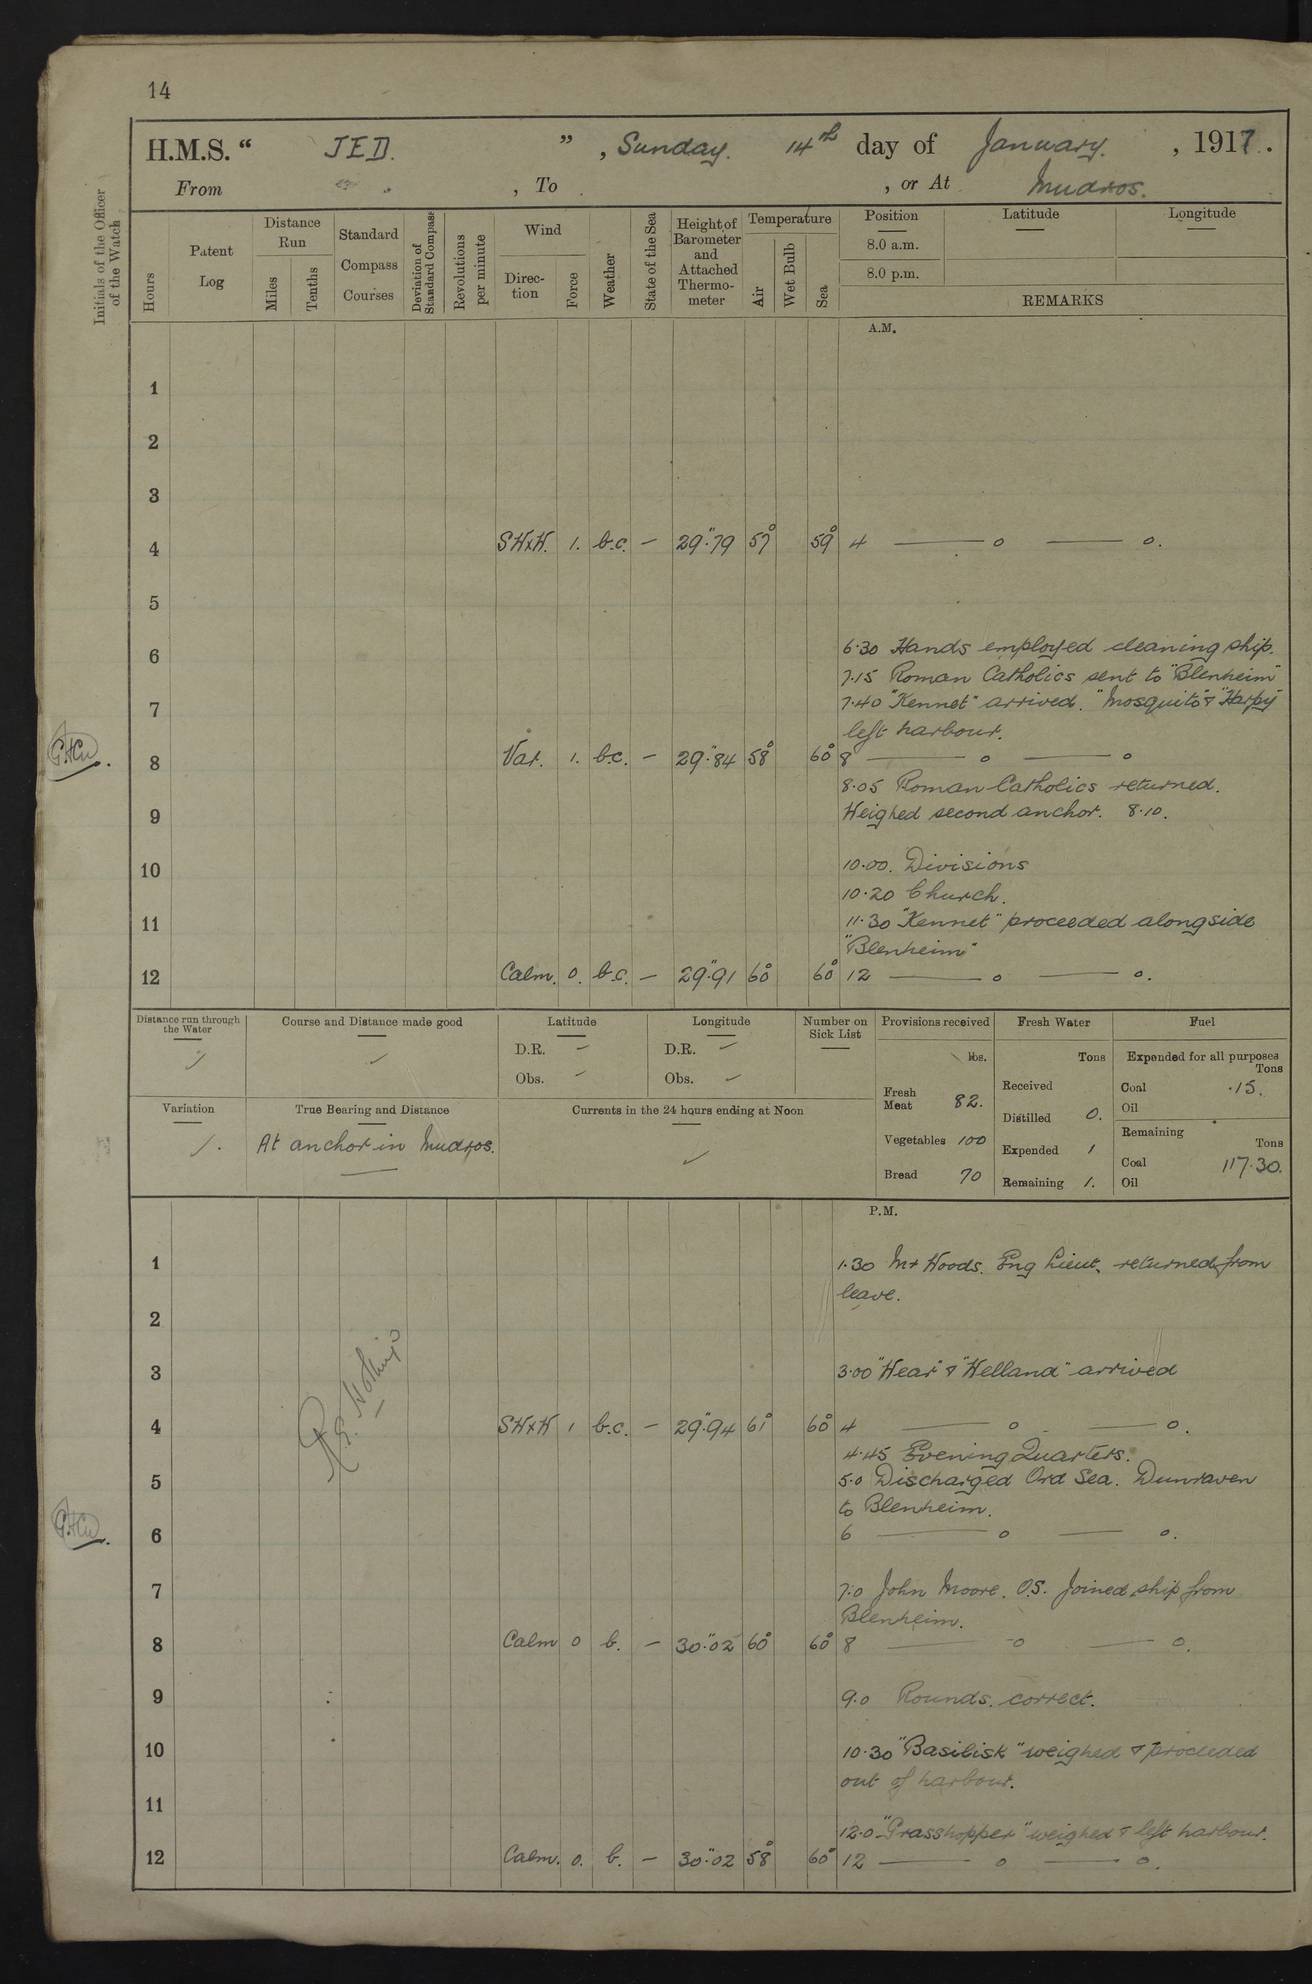 14
H.M.S. “ JED. ” , Sunday. 14th day of January. , 1917.
From , To , or At Mudros.
Initials of the Officer of the Watch
Hours
Patent Log
Distance Run
Miles
Tenths
Standard Compass Courses
Deviation of Standard Compass
Revolutions per minute
Wind
Direction
Force
Weather
State of the Sea
Height of Barometer and Attached Thermometer
Temperature
Air
Wet Bulb
Sea
Position Latitude Longitude
8.0 a.m.
8.0 p.m.
REMARKS
A.M.
1
2
3
4 SWxW. 1. b.c. — 29".79 57° 59° 4 —— o —— o.
5
6 6.30 Hands employed cleaning ship.
7.15 Roman Catholics sent to "Blenheim"
7 7.40 "Kennet" arrived. "Mosquito" & "Harpy"
left harbour.
8 Var. 1. b.c. — 29".84 58° 60° 8 —— o —— o
8.05 Roman Catholics returned.
9 Weighed second anchor. 8.10.
10 10.00. Divisions
10.20 Church.
11 11.30 "Kennet" proceeded alongside
"Blenheim"
12 Calm. 0. b.c. — 29".91 60° 60° 12 —— o —— o.
Distance run through the Water
Course and Distance made good
Latitude
D.R. –
Obs. –
Longitude
D.R. –
Obs. –
Number on Sick List
Provisions received
lbs.
Fresh Meat 82.
Vegetables 100
Bread 70
Fresh Water
Tons
Received
Distilled 0.
Expended 1
Remaining 1.
Fuel
Expended for all purposes
Tons
Coal .15.
Oil
Remaining
Tons
Coal 117.30.
Oil
Variation
True Bearing and Distance
At anchor in Mudros.
Currents in the 24 hours ending at Noon
P.M.
1 1.30 Mr Woods. Eng Lieut, returned from
leave.
2
3 3.00 "Wear" & "Welland" arrived
4 SWxW 1 b.c. — 29".94 61° 60° 4 —— o —— o.
4.45 Evening Quarters.
5 5.0 Discharged Ord Sea. Dunraven
to Blenheim.
6 6 —— o —— o.
7 7.0 John Moore. O.S. Joined ship from
Blenheim.
8 Calm 0 b. — 30".02 60° 60° 8 —— o —— o.
9 9.0 Rounds. correct.
10 10.30 "Basilisk" weighed & proceeded
out of harbour.
11
12.0 "Grasshopper" weighed & left harbour.
12 Calm. 0. b. — 30".02 58° 60° 12 —— o —— o.